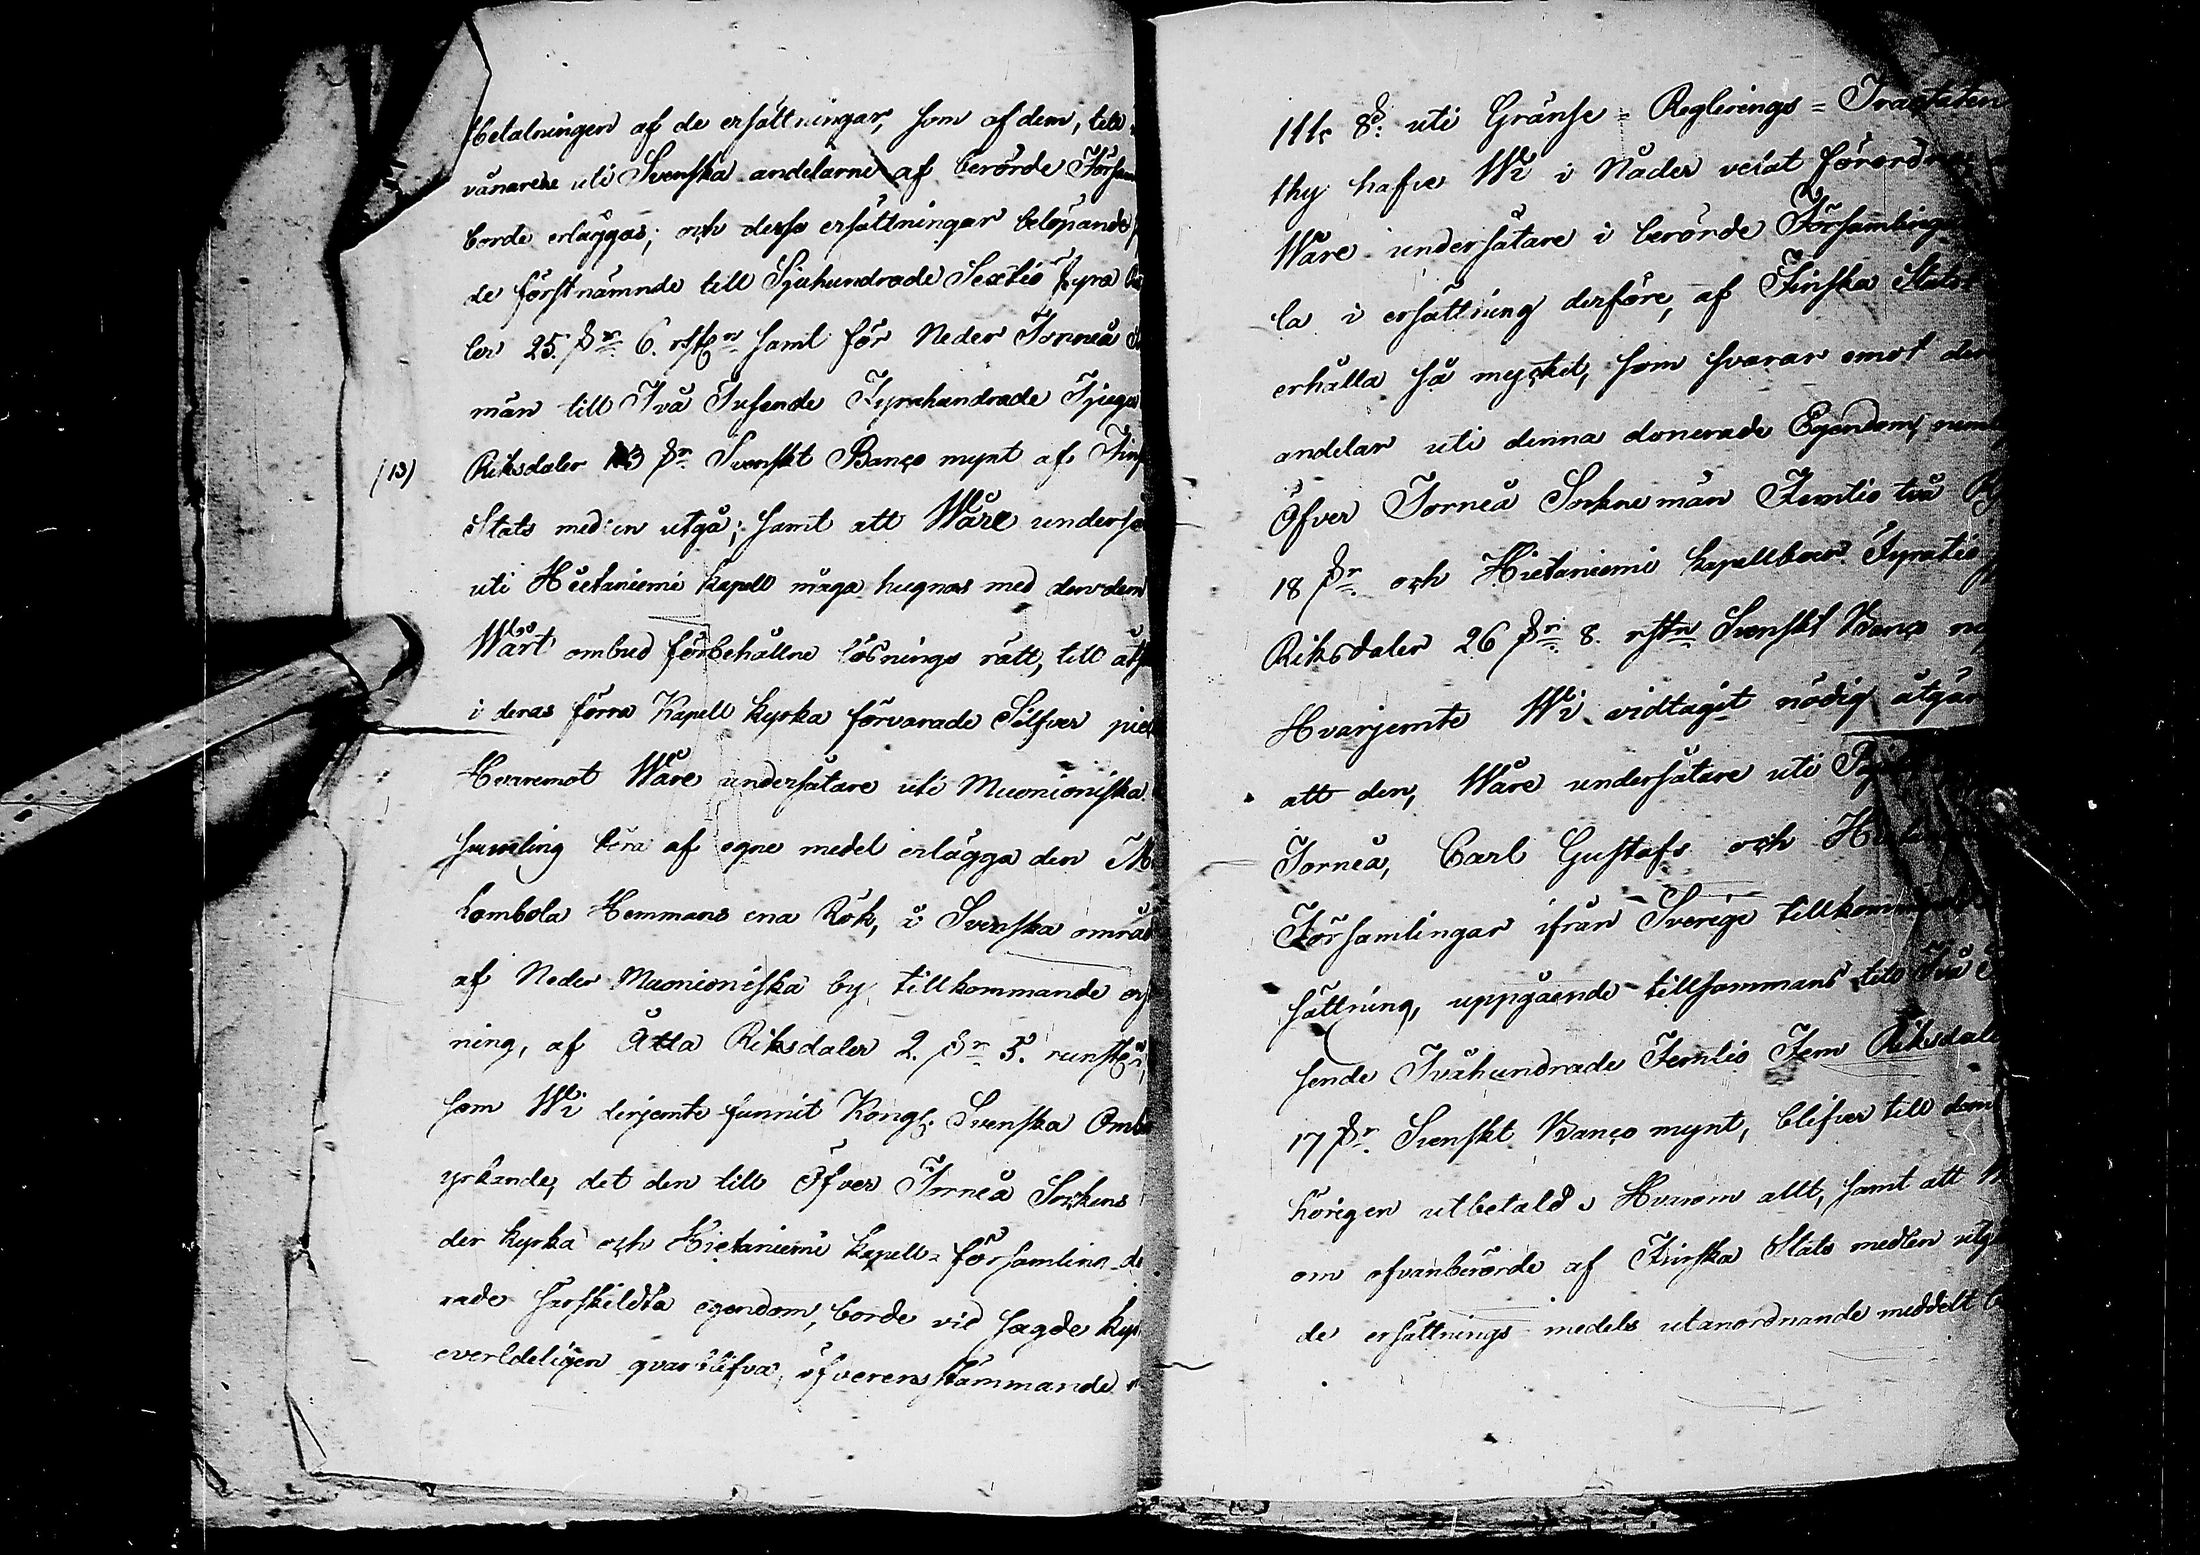 betalningen af de ersättningar, som af dem, till
vånarene uti Svenska andelarne af berörde Försam
borde erläggas; och dessa ersättningar belöpande
de förstnämnde till Sjuhundrade Sextio fyra
ler 25. sr 6. rstr samt för Neder Torneå
män till Två Tusende Fyrahundrade Tjugu
(13) Riksdaler 13 sr Svenskt Banco mynt af Fins
Stats medlen utgå; samt att Wåre unders
uti Hietaniemi kapell måga hugnas med den dem
Wårt ombud förbehållne lösnings rätt, till åt
i deras förra Kapell kyrka förvarade Silfver
Hvaremot Wåre undersåtare uti Muonioniska
samling böra af egne medel erlägga den
kombola Hemmans ena Rök, å Svenska områ
af Neder Muonioniska by tillkommande
ning, af Åtta Riksdaler 2. sr 3. runstr,
som Wi derjemte funnit Kongl. Svenska Omb
yrkande, det den till Öfver Torneå Sockens
der kyrka och Hietaniemi kapell-församling d
rade särskildta egendom, borde vid sagde kyr
everldeligen qvarblifva, öfverensstämmande
Art. 8. uti Gränse-Reglerings-Tractaten
thy hafve Wi i Nåder velat förordna
Wåre undersåtare i berörde Församling
la i ersättning derföre, af Finska Stats
erhålla så mycket, som svarar emot der
andelar uti denna donerade Egendom, neml
Öfver Torneå Sockne män Femtio två
18 sr och Hietaniemi kapellboer Fyratio
Riksdaler 26 sr 8. rstr Svenskt Banco
Hvarjemte Wi vidtagit nödig åtgär
att den, Wåre undersåtare uti
Torneå, Carl Gustafs och
Församlingar ifrån Sverige tillkommande
sättning, uppgående tillsammans till Två
sende Tvåhundrade Femtio Fem Riksdal
17 sr Svenskt Banco mynt, blifver till dem
hörigen utbetald. Hvarom allt, samt att
om ofvanberörde af Finska Stats medlen utg
de ersättnings-medels utanordnande meddelt